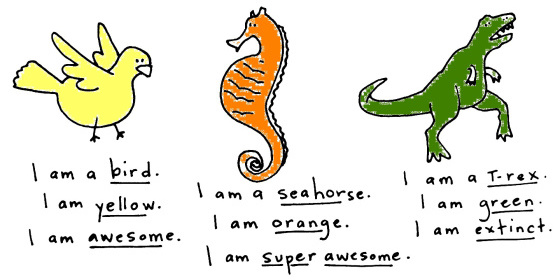 I am a bird.
I am yellow.
I am awesome.
I am a seahorse.
I am orange.
I am super awesome.
I am a T-rex.
I am green.
I am extinct.